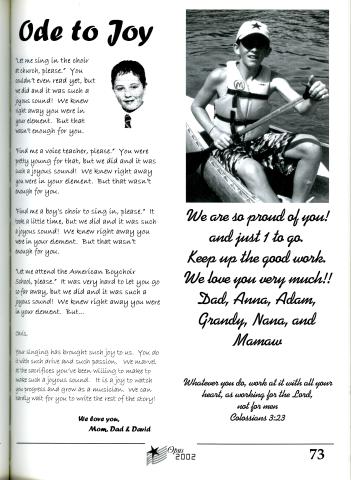 Ode to Joy
"Let me sing in the choir
at church, please." You
couldn't even read yet, but
we did and it was such a
joyous sound! We knew
right away you were in
your element. But that
wasn't enough for you.
"Find me a voice teacher, please." You were
pretty young for that, but we did and it was
such a joyous sound! We knew right away
you were in your element. But that wasn't
enough for you.
"Find me a boy's choir to sing in, please." It
took a little time, but we did and it was such
a joyous sound! We knew right away you
were in your element. But that wasn't
enough for you.
"Let me attend the American Boychoir
School, please." It was very hard to let you go
so far away, but we did and it was such a
joyous sound! We knew right away you were
in your element. But...
Your singing has brought such joy to us. You do
it with such drive and such passion. We marvel
at the sacrifices you've been willing to make to
make such a joyous sound. It is a joy to watch
you progress and grow as a musician. We can
hardly wait for you to write the rest of the story!
We love you,
Mom, Dad & David
We are so proud of you!
and just 1 to go.
Keep up the good work.
We love you very much!!
Dad, Anna, Adam,
Grandy, Nana, and
Mamaw
Whatever you do, work at it with all your
heart, as working for the Lord,
not for men
Colossians 3:23
Opus
2002
73